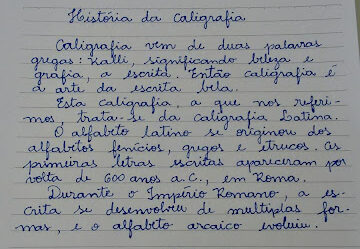 História da Caligrafia
Caligrafia vem de duas palavras
gregas: Kalli, significando beleza e
grafia, a escrita. Então caligrafia é
a arte da escrita bela.
Esta caligrafia, a que nos referi-
mos, trata-se da caligrafia Latina.
O alfabeto latino se originou dos
alfabetos fenícios, gregos e etrucos. As
primeiras letras escritas apareceram por
volta de 600 anos a.C., em Roma.
Durante o Império Romano, a es-
crita se desenvolveu de multiplas for-
mas, e o alfabeto arcaico evoluiu.